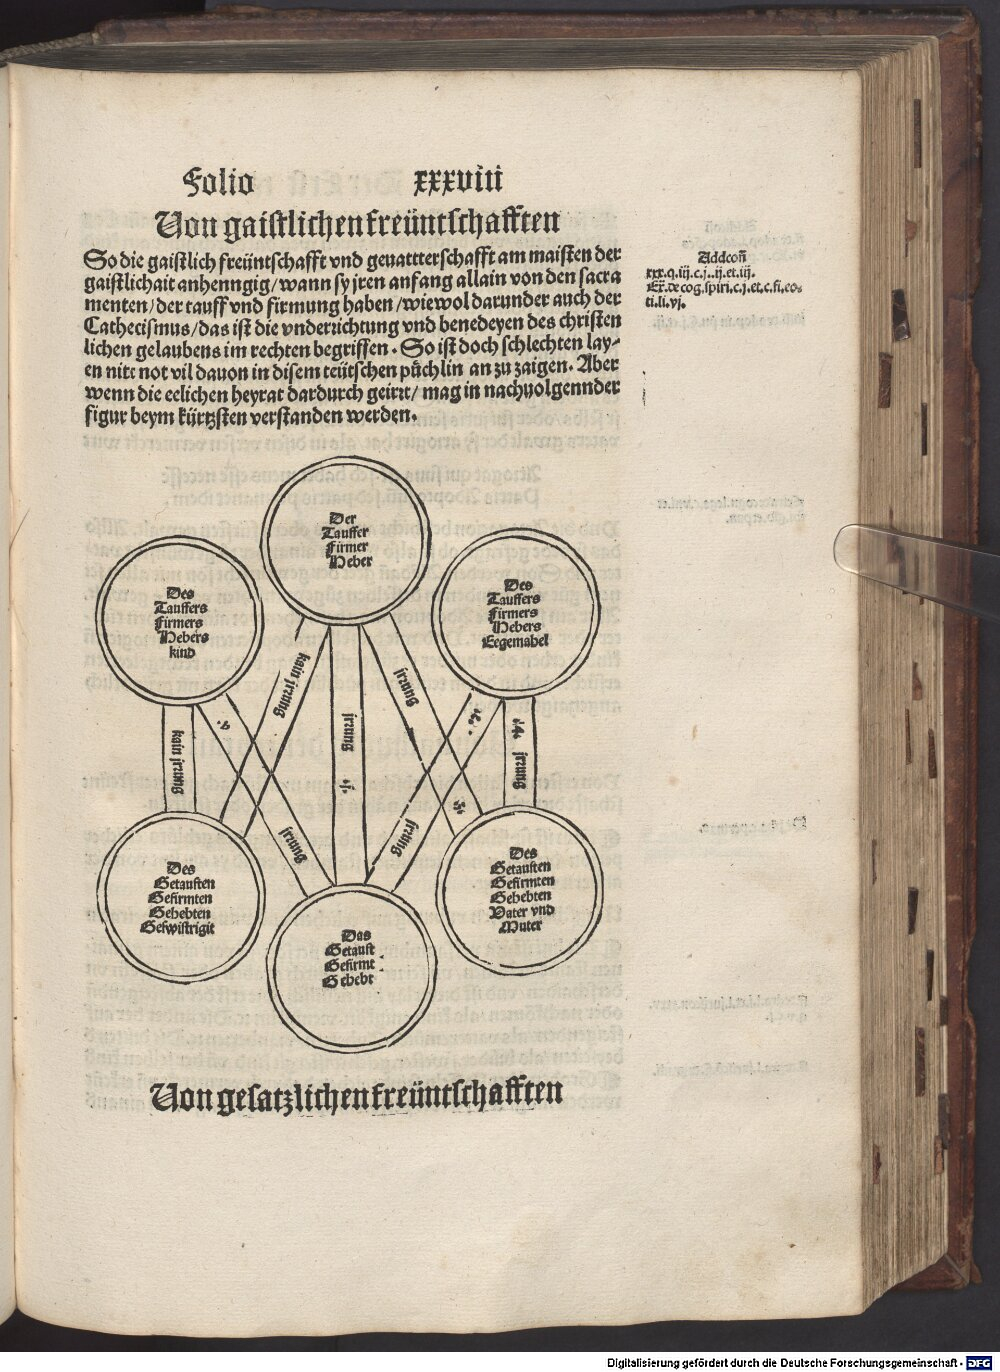 Folio xxxviii
Von gaistlichen freüntschafften
So die gaistlich freüntschafft vnd geuattterschafft am maisten der
gaistlichait anhenngig / wann sy jren anfang allain von den sacra
menten / der tauff vnd firmung haben / wiewol darunder auch der
Cathecismus / das ist die vnderrichtung vnd benedeyen des christen
lichen gelaubens im rechten begriffen. So ist doch schlechten lay-
en nitt not vil dauon in disem teütschen püchlin an zu zaigen. Aber
wenn die eelichen heyrat dardurch geirrt / mag in nachuolgennder
figur beym kürtzsten verstanden werden.
Addcoñ
xxx.q.iij.c.j..ij.et.iij.
Ex.de cog.spiri.c.j.et.c.fi.eo.
ti.li.vj.
Der
Tauffer
Firmer
Heber
Des
Tauffers
Firmers
Hebers
kind
Des
Tauffers
Firmers
Hebers
Eegemahel
kain jrrung
kain jrrung
jrrung
jrrung
jrrung
jrrung
jrrung
Des
Getaufften
Gefirmten
Gehebten
Geswistrigit
Das
Getaufft
Gefirmt
Gehebt
Des
Getaufften
Gefirmten
Gehebten
Vater vnd
Muter
Von gesatzlichen freüntschafften
Digitalisierung gefördert durch die Deutsche Forschungsgemeinschaft - DFG